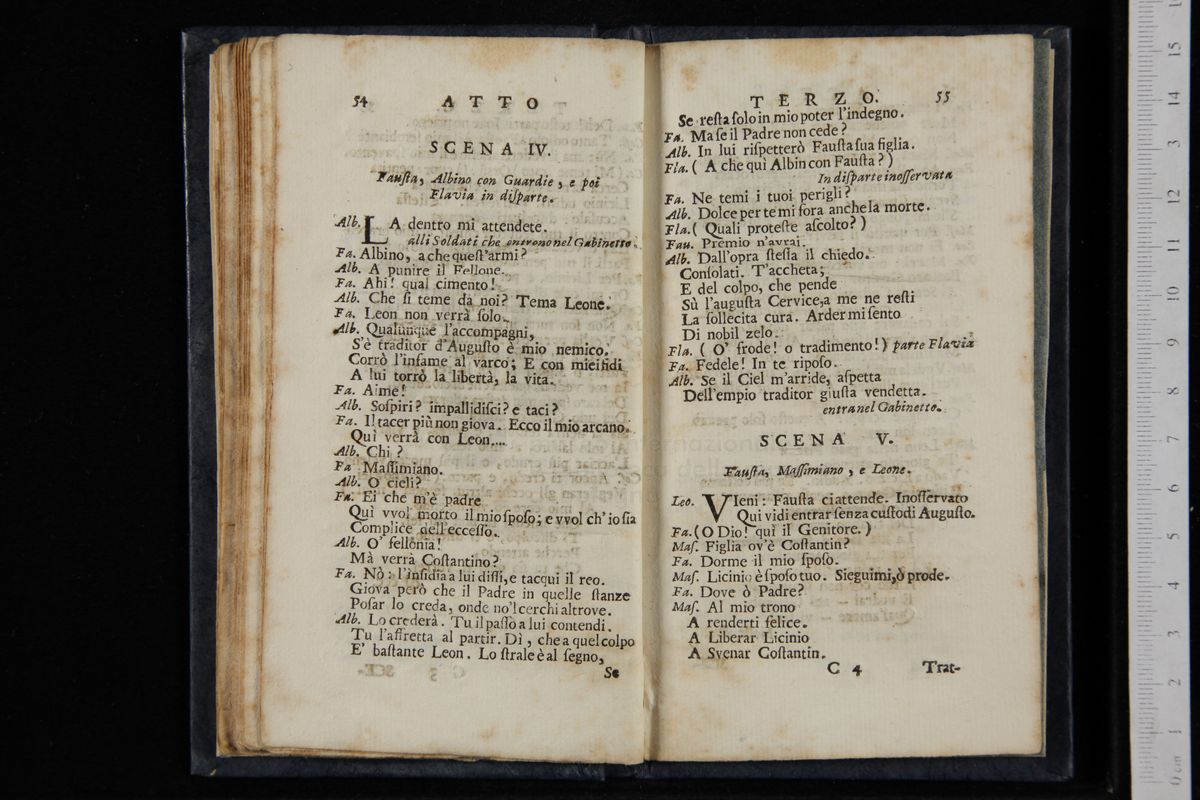 54 ATTO
SCENA IV.
Fauſta, Albino con Guardie, e poi
Flavia in diſparte.
Alb. LA dentro mi attendete.
alli Soldati che entrono nel Gabinetto.
Fa. Albino, a che queſt'armi?
Alb. A punire il Fellone.
Fa. Ahi! qual cimento!
Alb. Che ſi teme da noi? Tema Leone.
Fa. Leon non verrà ſolo.
Alb. Qualunque l'accompagni,
S'è traditor d'Auguſto è mio nemico.
Corrò l'infame al varco; E con miei fidi
A lui torrò la libertà, la vita.
Fa. Aime!
Alb. Soſpiri? impallidiſci? e taci?
Fa. Il tacer più non giova. Ecco il mio arcano.
Quì verrà con Leon....
Alb. Chi?
Fa Maſſimiano.
Alb. O cieli?
Fa. Ei che m'è padre
Quì vvol morto il mio ſpoſo; e vvol ch'io ſia
Complice dell'ecceſſo.
Alb. O' fellonia!
Mà verrà Coſtantino?
Fa. Nò: l'inſidia a lui diſſi, e tacqui il reo.
Giova però che il Padre in quelle ſtanze
Poſar lo creda, onde no'l cerchi altrove.
Alb. Lo crederà. Tu il paſſo a lui contendi.
Tu l'affretta al partir. Dì, che a quel colpo
E' baſtante Leon. Lo ſtrale è al ſegno,
Se
TERZO. 55
Se reſta ſolo in mio poter l'indegno.
Fa. Ma ſe il Padre non cede?
Alb. In lui riſpetterò Fauſta ſua figlia.
Fla. ( A che quì Albin con Fauſta? )
In diſparte inoſſervata
Fa. Ne temi i tuoi perigli?
Alb. Dolce per te mi fora anche la morte.
Fla. ( Quali proteſte aſcolto? )
Fau. Premio n'avrai.
Alb. Dall'opra ſteſſa il chiedo.
Conſolati. T'accheta;
E del colpo, che pende
Sù l'auguſta Cervice, a me ne reſti
La ſollecita cura. Arder mi ſento
Di nobil zelo.
Fla. ( O' frode! o tradimento! ) parte Flavia
Fa. Fedele! In te ripoſo.
Alb. Se il Ciel m'arride, aſpetta
Dell'empio traditor giuſta vendetta.
entra nel Gabinetto.
SCENA V.
Fauſta, Maſſimiano, e Leone.
Leo. VIeni: Fauſta ci attende. Inoſſervato
Qui vidi entrar ſenza cuſtodi Auguſto.
Fa. (O Dio! quì il Genitore.)
Maſ. Figlia ov'è Coſtantin?
Fa. Dorme il mio ſpoſo.
Maſ. Licinio è ſpoſo tuo. Sieguimi, ò prode.
Fa. Dove ò Padre?
Maſ. Al mio trono
A renderti felice.
A Liberar Licinio
A Svenar Coſtantin.
C 4 Trat-